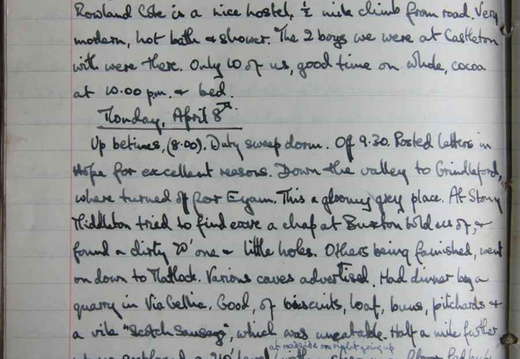 Rowland Cote is a nice hostel, ½ mile climb from road. Very
modern, hot bath & shower. The 2 boys we were at Castleton
with were there. Only 10 of us, good time on whole, cocoa
at 10.00 pm. & bed.
Monday, April 8th.
Up betimes, (8.00). Duty sweep dorm. Off 9.30. Posted letters in
Hope for excellent reasons. Down the valley to Grindleford,
where turned off for Eyam. This a gloomy grey place. At Stony
Middleton tried to find cave a chap at Buxton told us of, &
found a dirty 70' one & little holes. Others being famished, went
on down to Matlock. Various caves advertised. Had dinner by a
quarry in Via Gellia. Good, of biscuits, loaf, buns, pilchards &
a vile "Scotch Sausage", which was uneatable. Half a mile further
at roadside on right going up